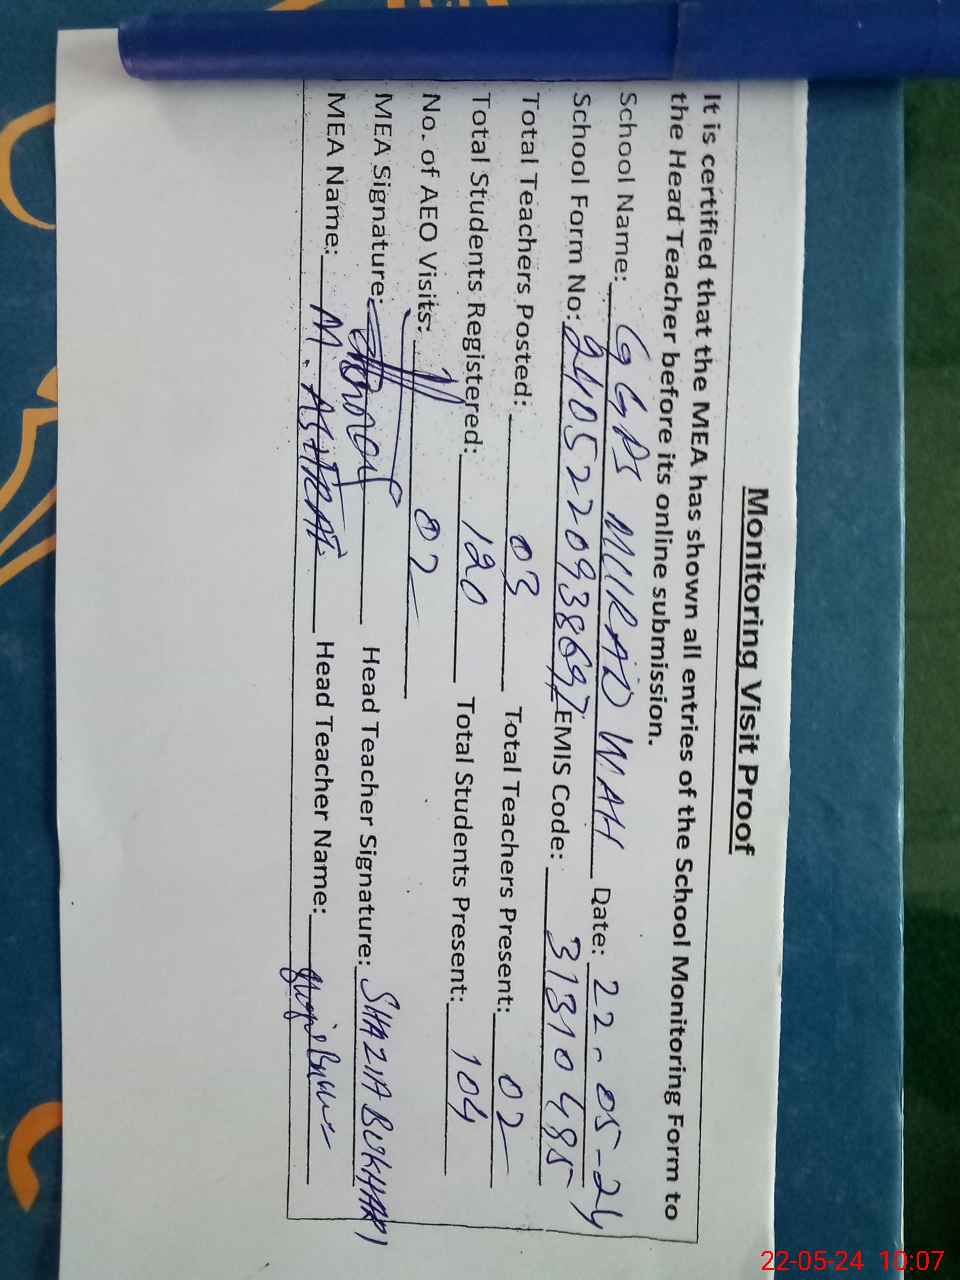 Monitoring Visit Proof
It is certified that the MEA has shown all entries of the School Monitoring Form to
the Head Teacher before its online submission.
School Name: GGPS MURAD WAH Date: 22-05-24
School Form No: 2405220938697 EMIS Code: 31310485
Total Teachers Posted: 03 Total Teachers Present: 02
Total Students Registered: 120 Total Students Present: 104
No. of AEO Visits: 02
MEA Signature: Head Teacher Signature: SHAZIA BUKHARI
MEA Name: M. ASHRAF Head Teacher Name:
22-05-24 10:07